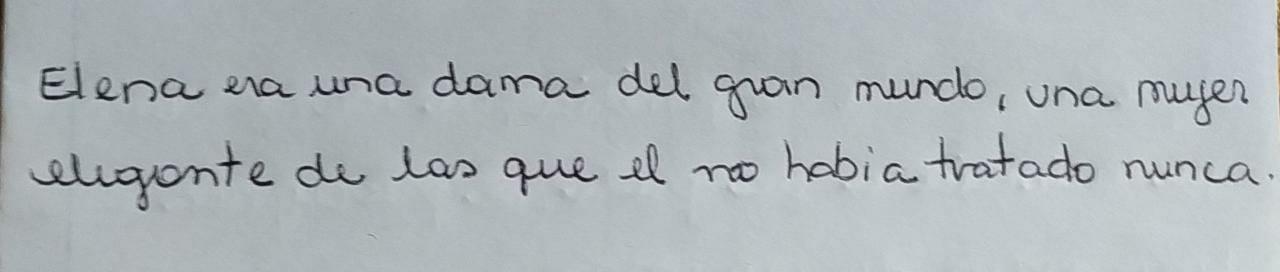 Elena era una dama del gran mundo, una mujer
elegante de las que el no habia tratado nunca.